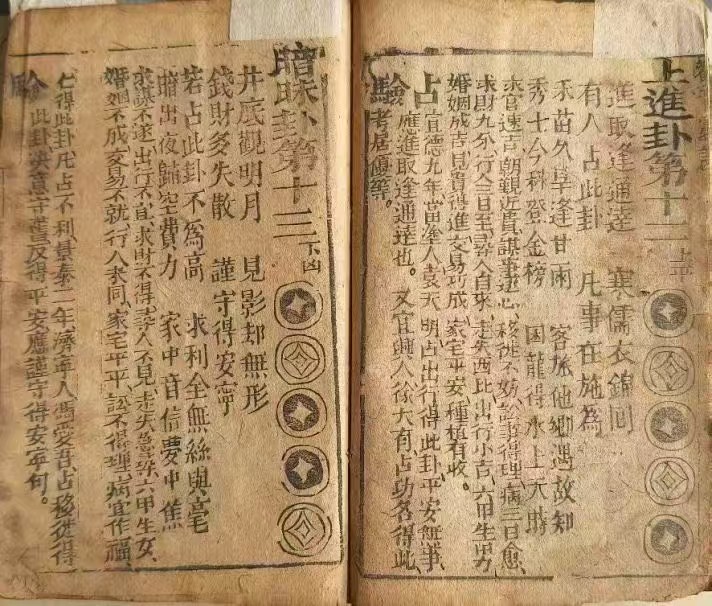 上進卦第十二
上平
進取逢通達　寒儒衣錦回
有人占此卦　凡事在施為
禾苗久旱逢甘雨　客旅他鄉遇故知
秀士今科登金榜　困龍得水上天時
求官速吉朝覲近貴謀事遂心移徙不妨訟事得理病三日愈
求財九分行人三日至尋人自來走失西北出行小吉六甲生男
婚姻成吉見貴得進交易巧成家宅平安種植有收。
占
宣德九年當塗人袁天明占出行得此卦平安無事
應進取逢通達也。又宜興人徐大有占功名得此
驗
考居優等。
暗昧卦第十三
下凶
井底觀明月　見影却無形
錢財多失散　謹守得安寧
若占此卦不為高　求利全無絲與毫
暗出夜歸空費力　家中音信夢中焦
求謀不遂出行不宜求財不得尋人不見走失急尋六甲生女
婚姻不成交易不就行人未回家宅平平訟不得理病宜作福
仁得此卦凡占不利景泰二年濟寧人馮愛吾占移徙得
驗
此卦決意守舊反得平安應謹守得安寧句。